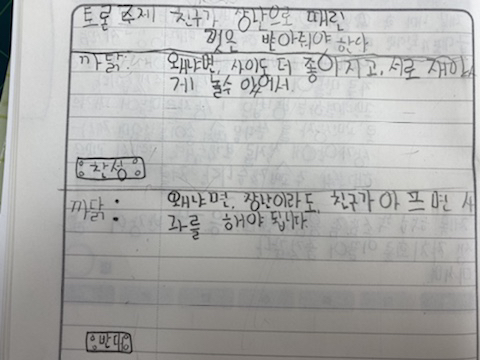 토론 주제 친구가 장난으로 때린
것은 받아줘야 한다
까닭: 왜냐면, 사이도 더 좋아지고, 서로 재미
게 놀수 있어서
찬성
까닭: 왜냐면, 장난이라도, 친구가 아프면 사
과를 해야 됩니다.
반대